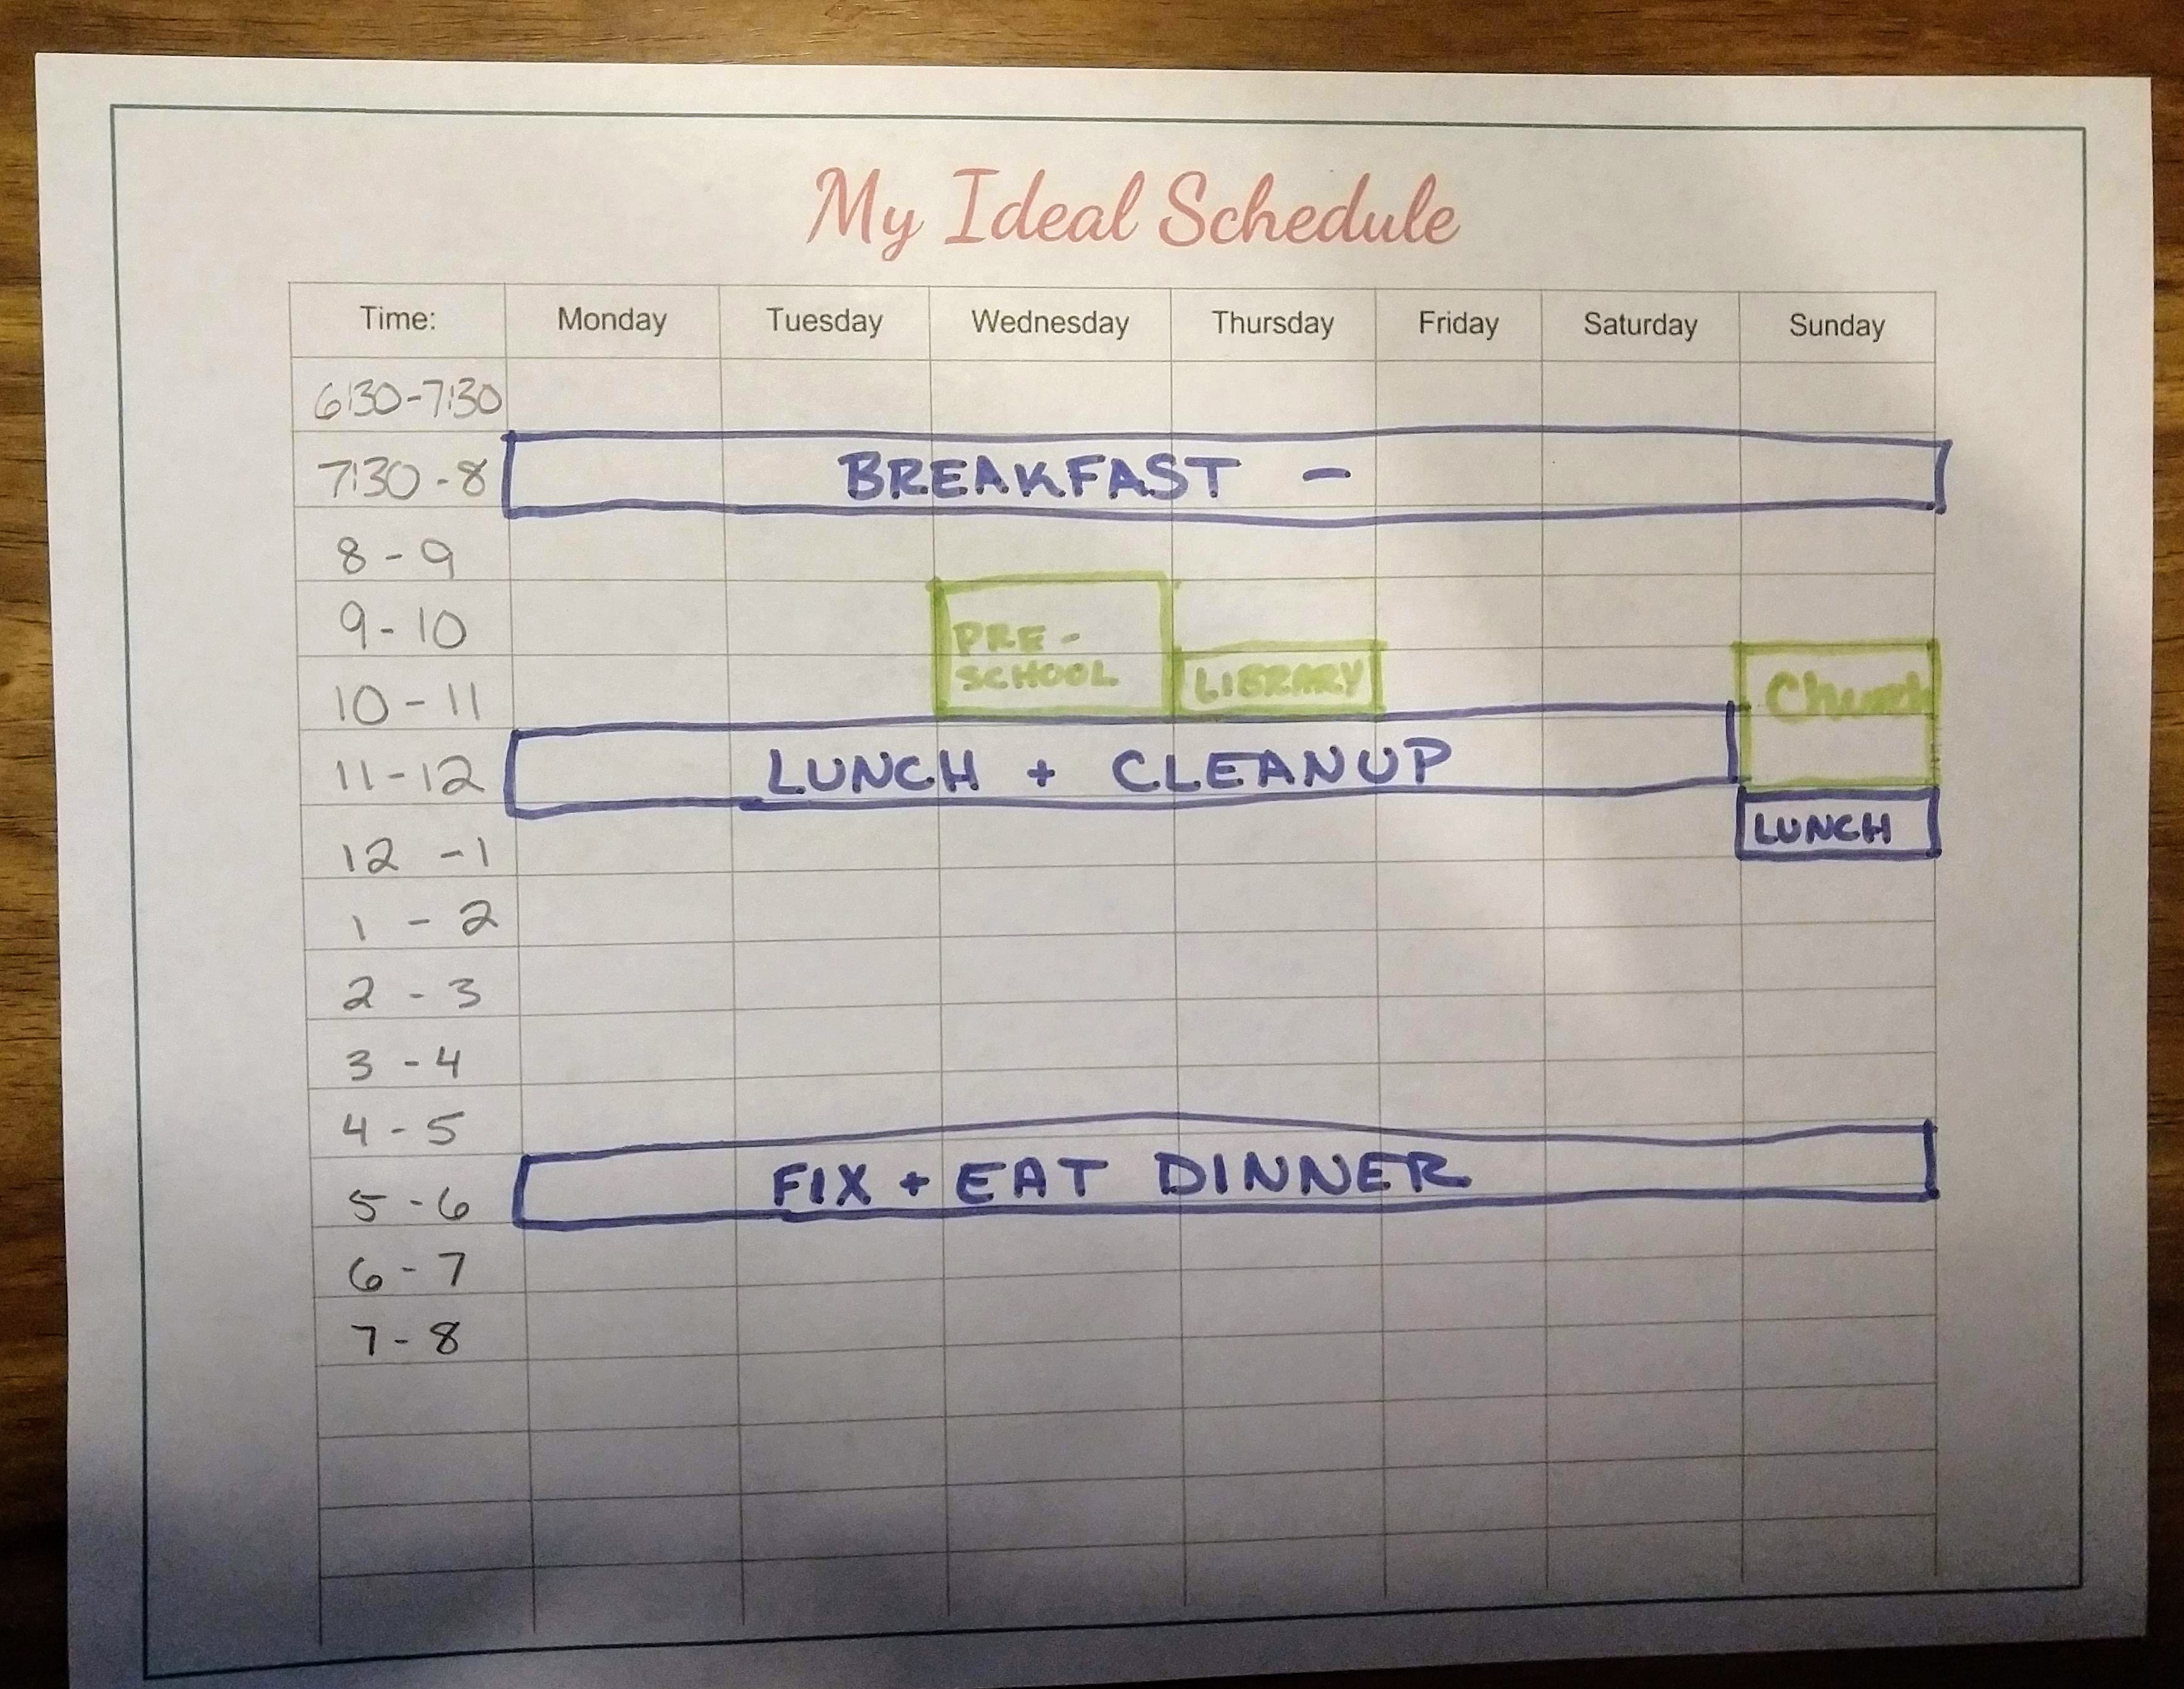 My Ideal Schedule
Time: Monday Tuesday Wednesday Thursday Friday Saturday Sunday
6:30-7:30
7:30-8 BREAKFAST -
8-9
9-10 PRE-
10-11 SCHOOL LIBRARY Church
11-12 LUNCH + CLEANUP
12-1 LUNCH
1-2
2-3
3-4
4-5
5-6 FIX + EAT DINNER
6-7
7-8